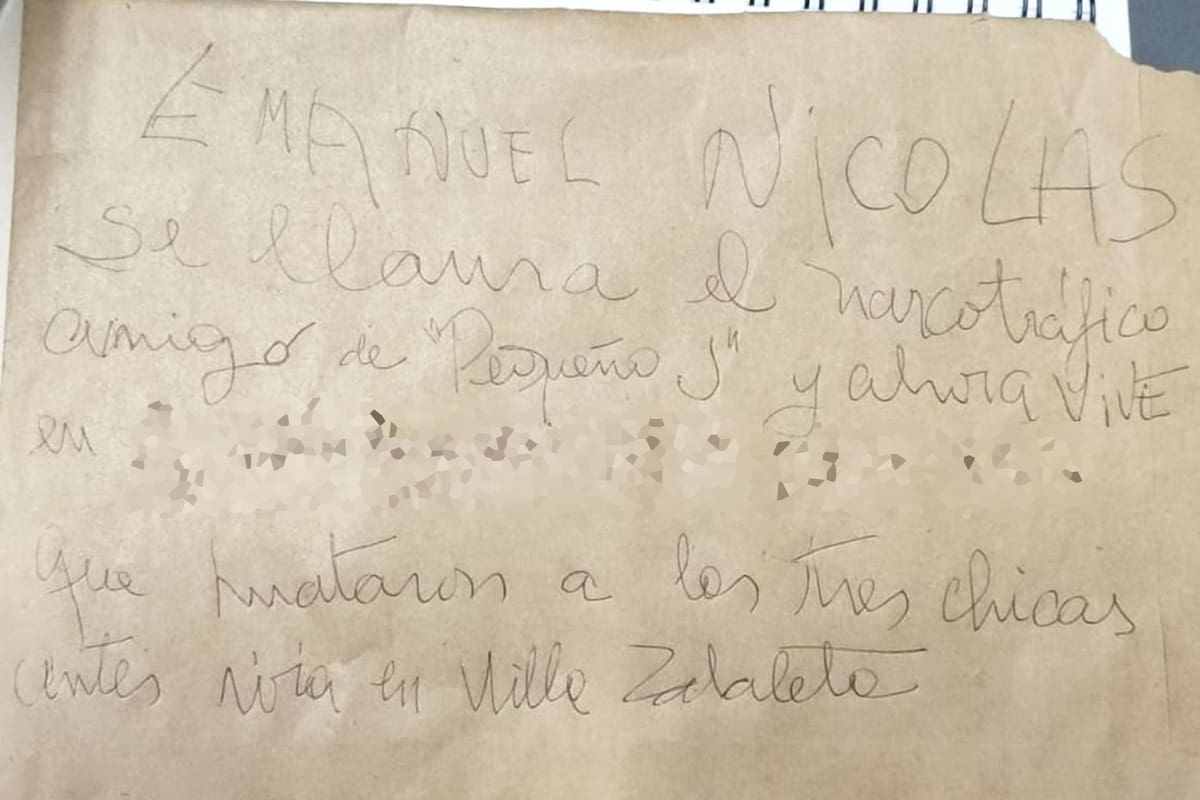 EMANUEL NiCOLAS
Se llama el narcotráfico
amigo de "Pequeño J" y ahora ViVE
en
que mataron a las tres chicas
antes vivia en Villa Zabaleta